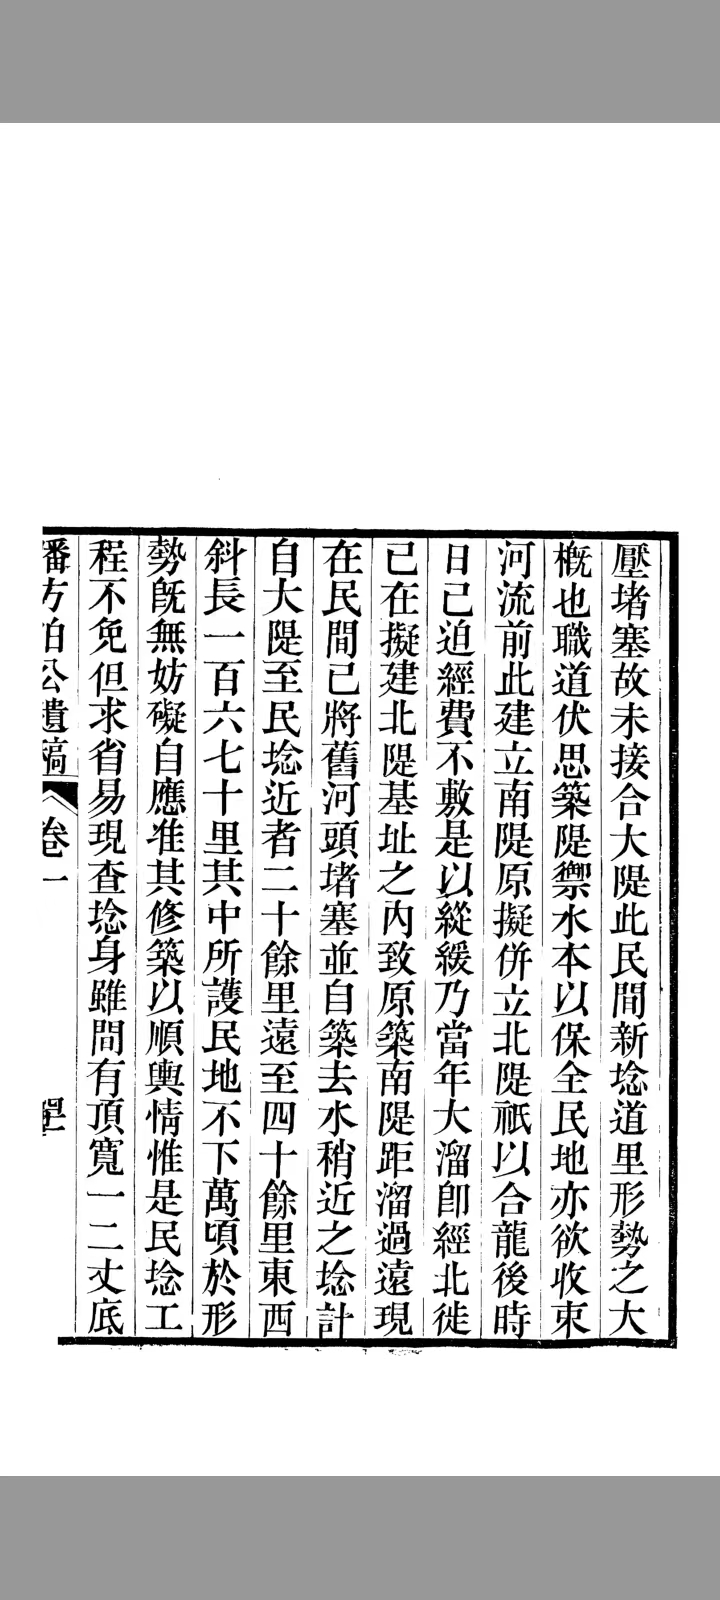 壓堵塞故未接合大隄此民間新埝道里形勢之大
槪也職道伏思築隄禦水本以保全民地亦欲收束
河流前此建立南隄原擬併立北隄祇以合龍後時
日已迫經費不敷是以從緩乃當年大溜卽經北徙
已在擬建北隄基址之內致原築南隄距溜過遠現
在民間已將舊河頭堵塞並自築去水稍近之埝計
自大隄至民埝近者二十餘里遠至四十餘里東西
斜長一百六七十里其中所護民地不下萬頃於形
勢旣無妨礙自應准其修築以順輿情惟是民埝工
程不免但求省易現查埝身雖間有頂寬一二丈底
潘方伯公遺稿 卷一